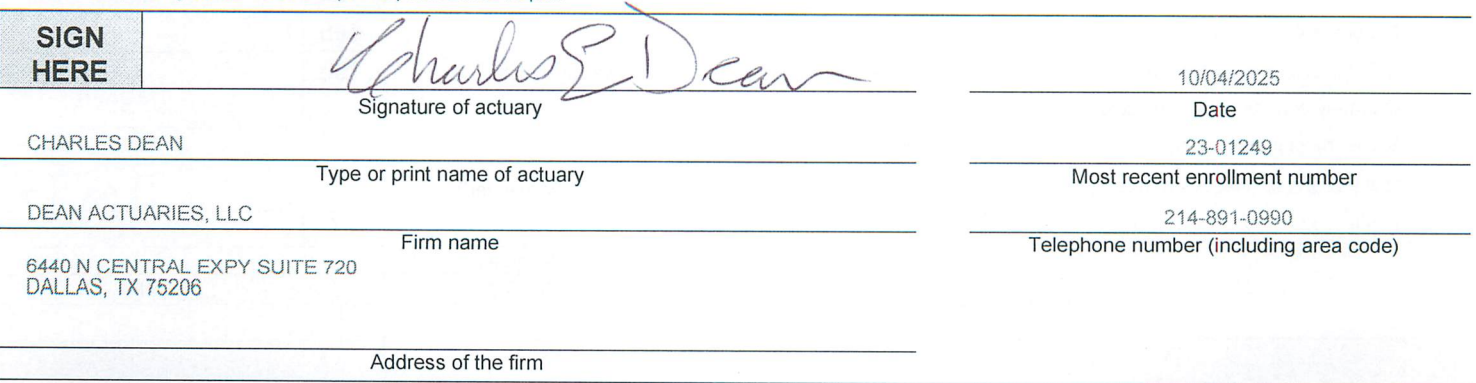 SIGN
HERE
Charles E Dean
10/04/2025
Signature of actuary
Date
CHARLES DEAN
23-01249
Type or print name of actuary
Most recent enrollment number
DEAN ACTUARIES, LLC
214-891-0990
Firm name
Telephone number (including area code)
6440 N CENTRAL EXPY SUITE 720
DALLAS, TX 75206
Address of the firm